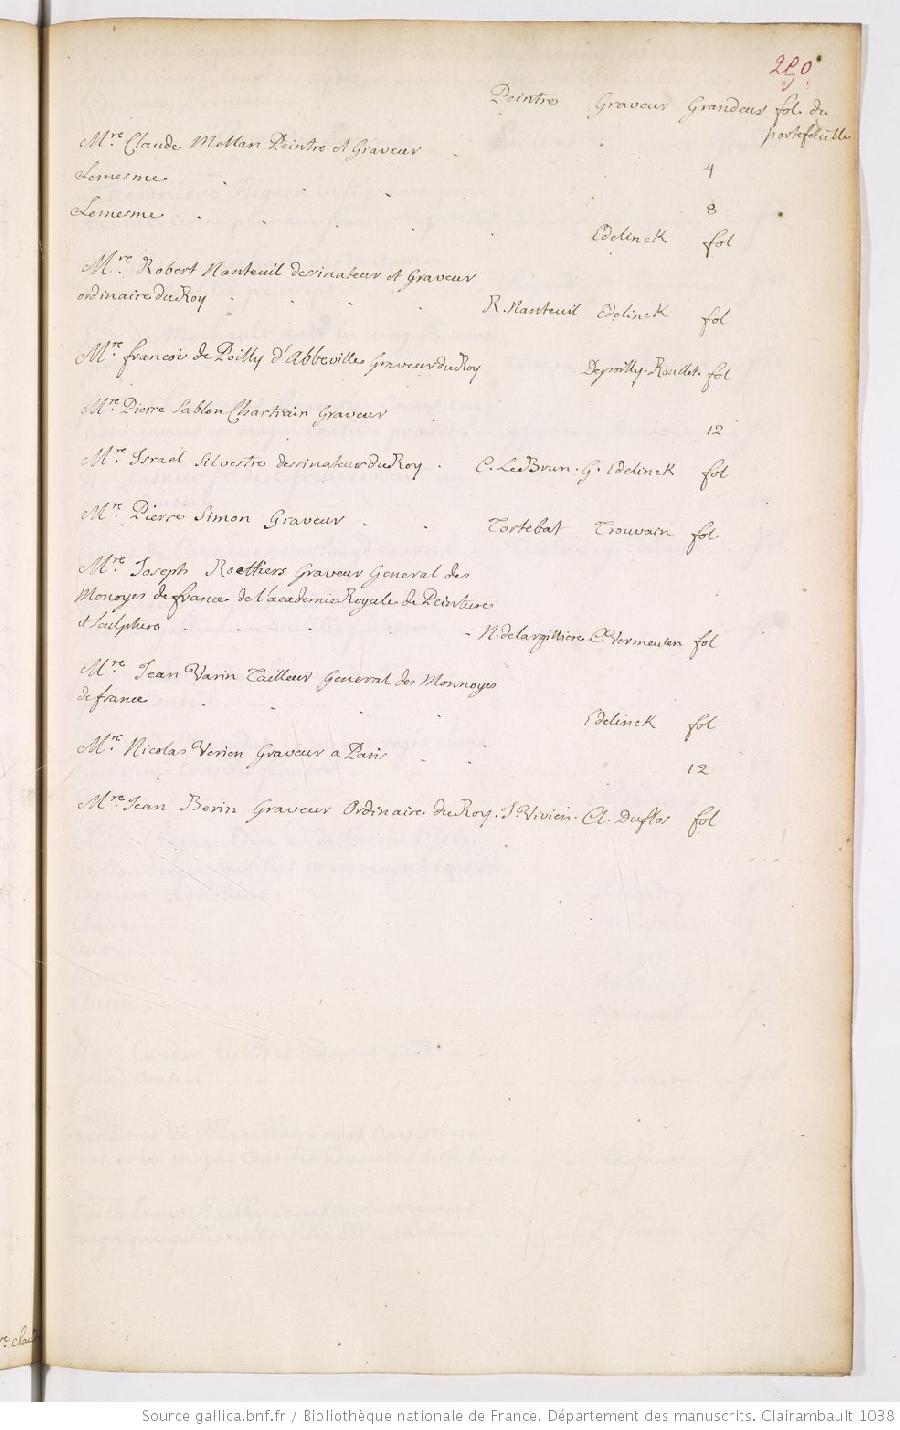 290
Peintre Graveur Grandeur fol. du
portefeuille
Mre. Claude Mellan Peintre et Graveur
Lemesme . . . 4
Lemesme . . . . . . 8
Edelinck fol
Mre. Robert Nanteuil dessinateur et Graveur
ordinaire du Roy . . . . R. Nanteuil Edelinck fol
Mre. francois de Poilly d'Abbeville Graveur du Roy Depoilly. Roullet. fol
Mre. Pierre Sablon Chartrain Graveur . 12
Mre. Israel Silvestre dessinateur du Roy . C. Le Brun . G. Edelinck fol
Mre. Pierre Simon Graveur . . Tortebat Trouvain fol
Mre. Joseph Roettiers Graveur General des
Monoyes de france de l'academie Royale de Peinture
et Sculpture . . . . N. de largilliere C. Vermeulen fol
Mre. Jean Varin Tailleur General des Monnoyes
de france . . . . Edelinck fol
Mre. Nicolas Verien Graveur a Paris . . 12
Mre. Jean Berin Graveur Ordinaire du Roy. J. Vivien. Cl. Duflos fol
re. Claude
Source gallica.bnf.fr / Bibliothèque nationale de France. Département des manuscrits. Clairambault 1038